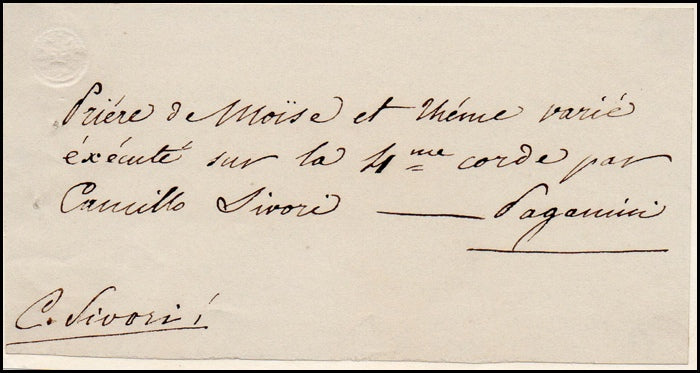 Priére de Moïse et thême varié
éxécuté sur la 4me corde par
Camillo Sivori — Paganini
C. Sivori